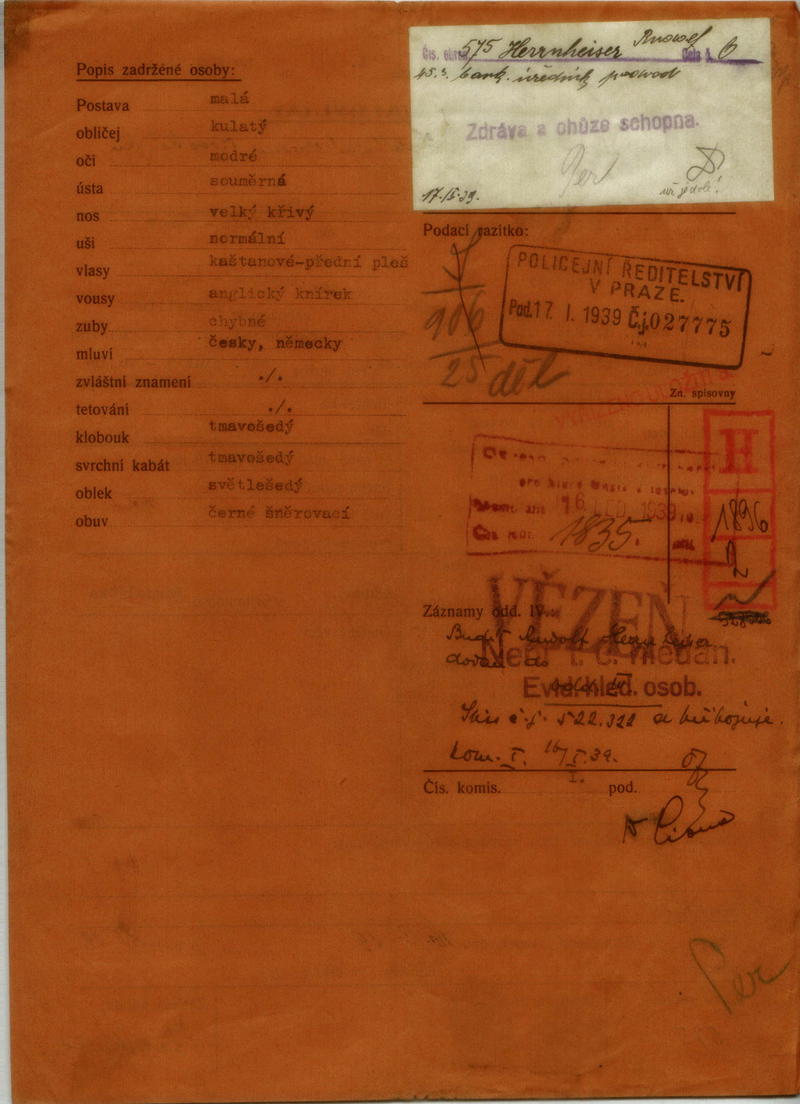 Popis zadržené osoby:
Postava malá
obličej kulatý
oči modré
ústa souměrná
nos velký křivý
uši normální
vlasy kaštanové-přední pleš
vousy anglický knírek
zuby chybné
mluví česky, německy
zvláštní znamení ./.
tetování ./.
klobouk tmavošedý
svrchní kabát tmavošedý
oblek světlešedý
obuv černé šněrovací
Čís. 575 Herrnheiser Rudolf Cela č. 6
bank. úředník podvod
Zdráva a chůze schopna.
Per
17.II.39.
Podací razítko:
906
25 děl
POLICEJNÍ ŘEDITELSTVÍ
V PRAZE.
Pod. 17. I. 1939 Č.j. 027775
Zn. spisovny
H
1896
2
16. LED. 1939
1835.
VĚZEŇ
Záznamy odd. IV.
Rudolf
Není t. č. hledán.
Evid. hled. osob.
č.j. 522.322 a
kom. I. 16/I.39.
Čís. komis. I. pod.
Per